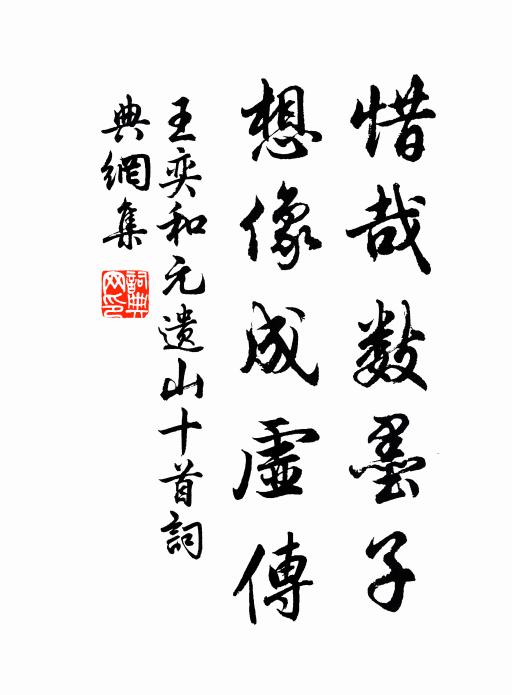 惜哉数墨子
想像成虛傳
王奕和元遺山十首詞
典網集
詞典网印